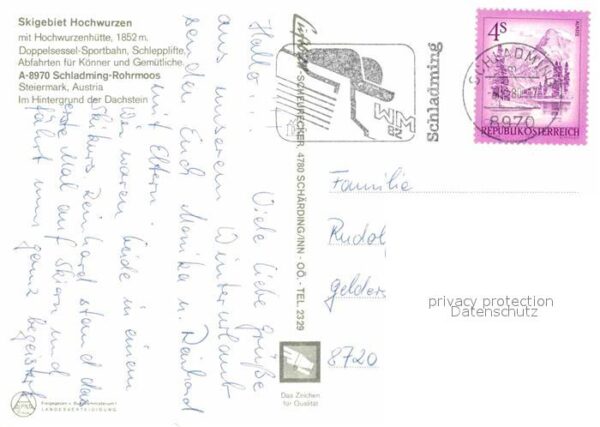 Skigebiet Hochwurzen
mit Hochwurzenhütte, 1852 m.
Doppelsessel-Sportbahn, Schlepplifte,
Abfahrten für Könner und Gemütliche,
A-8970 Schladming-Rohrmoos
Steiermark, Austria
Im Hintergrund der Dachstein
Hallo!
Viele liebe Grüße
aus unserem Winterurlaub
senden Euch Monika u. Reinhard
mit Eltern.
Wir waren beide in einem
Skikurs. Reinhard stand das
erste Mal auf Skiern und
fährt nun ganz begeistert
SCHÄRDING/INN - OÖ. - TEL. 2329
4780
WM
82
Schladming
4S
REPUBLIK ÖSTERREICH
SCHLADMING
8970
Familie
Rudol
gelder
8720
privacy protection
Datenschutz
Das Zeichen
für Qualität
LANDESVERTEIDIGUNG